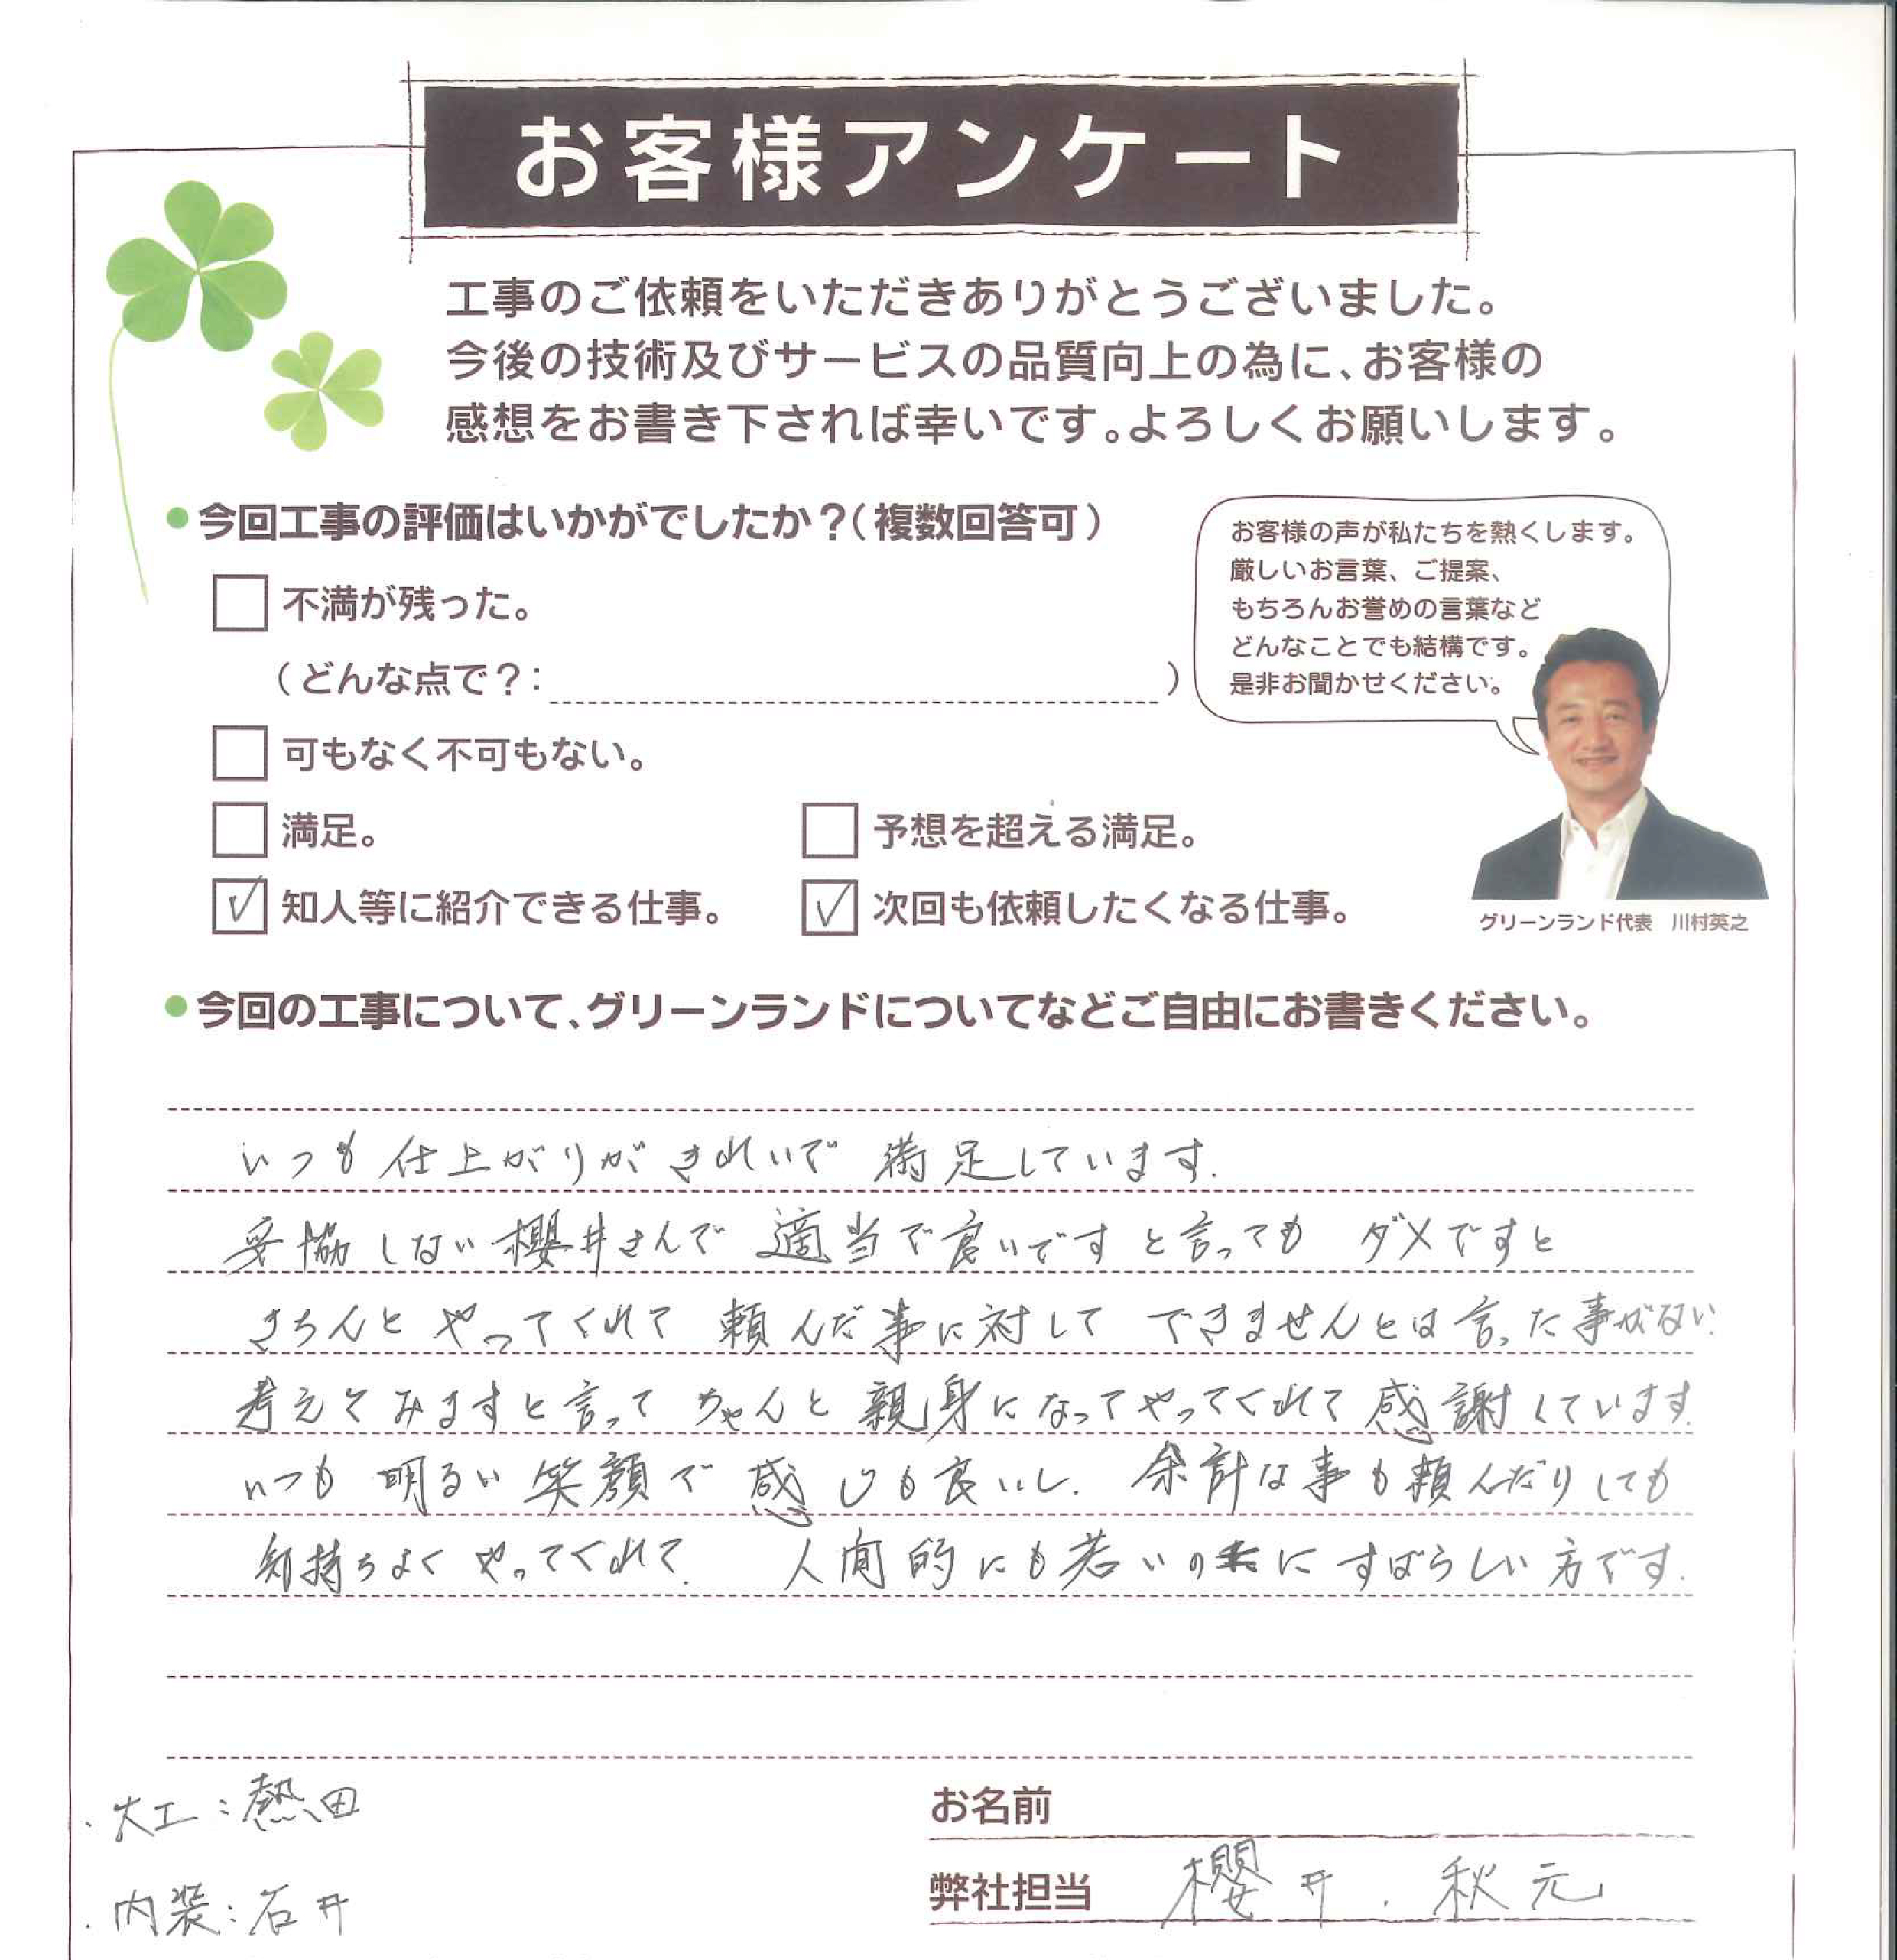 お客様アンケート
工事のご依頼をいただきありがとうございました。
今後の技術及びサービスの品質向上の為に、お客様の
感想をお書き下されば幸いです。よろしくお願いします。
●今回工事の評価はいかがでしたか？（複数回答可）
不満が残った。
（どんな点で？：　　　）
可もなく不可もない。
満足。
予想を超える満足。
知人等に紹介できる仕事。
次回も依頼したくなる仕事。
お客様の声が私たちを熱くします。
厳しいお言葉、ご提案、
もちろんお誉めの言葉など
どんなことでも結構です。
是非お聞かせください。
グリーンランド代表　川村英之
●今回の工事について、グリーンランドについてなどご自由にお書きください。
いつも仕上がりがきれいで満足しています.
妥協しない櫻井さんで適当で良いですと言ってもダメですと
きちんとやってくれて頼んだ事に対してできませんとは言った事がない.
考えてみますと言ってちゃんと親身になってやってくれて感謝しています.
いつも明るい笑顔で感じも良いし.余計な事も頼んだりしても
気持ちよくやってくれて.人間的にも若いのにすばらしい方です.
・大工：熱田
・内装：石井
お名前
弊社担当　櫻井.秋元